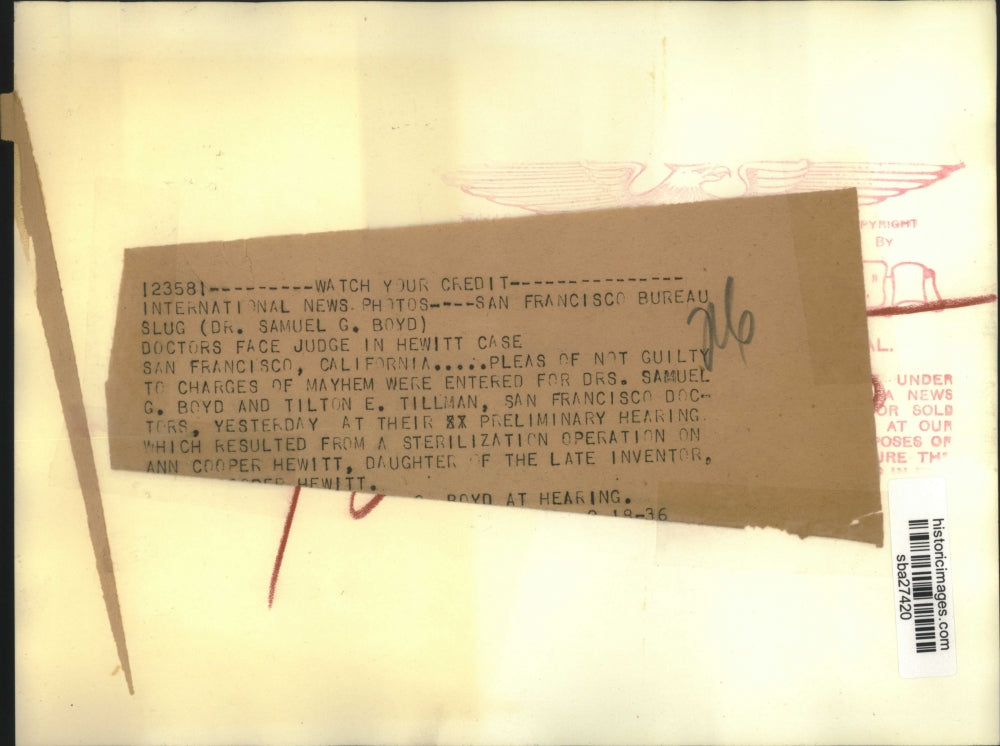 123581---------WATCH YOUR CREDIT---------------
INTERNATIONAL NEWS PHOTOS----SAN FRANCISCO BUREAU
SLUG (DR. SAMUEL G. BOYD)
DOCTORS FACE JUDGE IN HEWITT CASE
SAN FRANCISCO, CALIFORNIA.....PLEAS OF NOT GUILTY
TO CHARGES OF MAYHEM WERE ENTERED FOR DRS. SAMUEL
G. BOYD AND TILTON E. TILLMAN, SAN FRANCISCO DOC-
TORS, YESTERDAY AT THEIR XX PRELIMINARY HEARING.
WHICH RESULTED FROM A STERILIZATION OPERATION ON
ANN COOPER HEWITT, DAUGHTER OF THE LATE INVENTOR,
HEWITT.
BOYD AT HEARING.
18-36
26
PYRIGHT
BY
AL.
UNDER
A NEWS
OR SOLD
AT OUR
POSES OF
URE TH
historicimages.com
sba27420